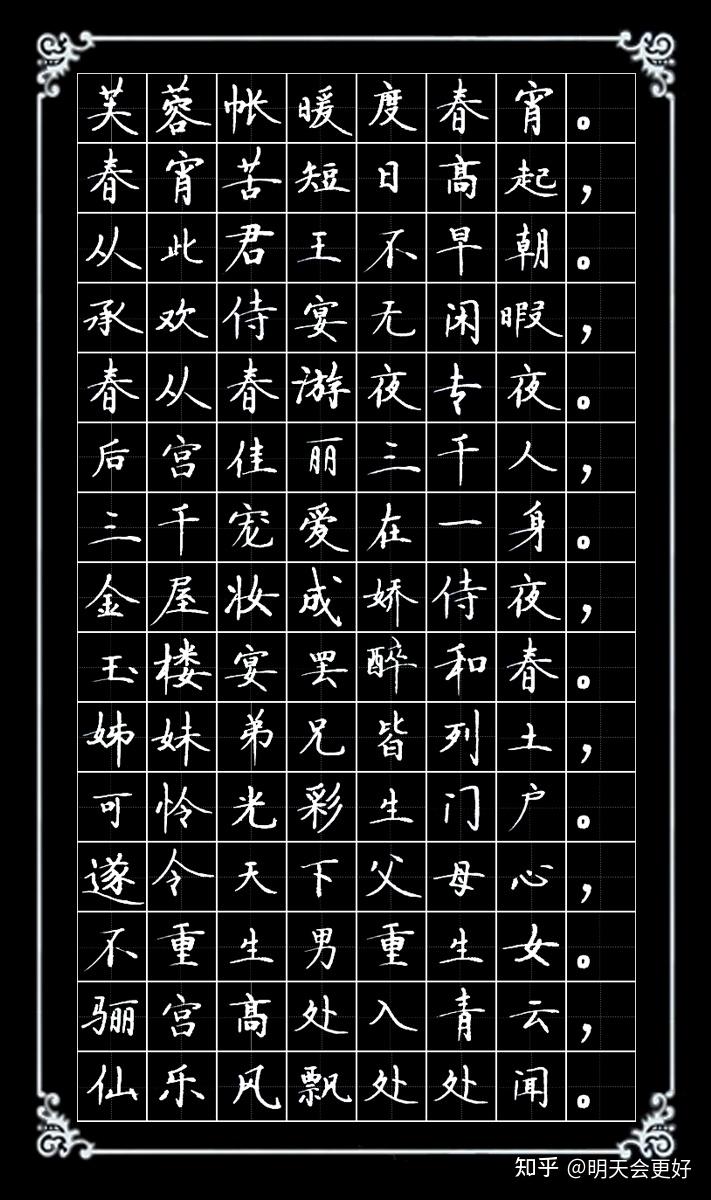 芙蓉帐暖度春宵。
春宵苦短日高起，
从此君王不早朝。
承欢侍宴无闲暇，
春从春游夜专夜。
后宫佳丽三千人，
三千宠爱在一身。
金屋妆成娇侍夜，
玉楼宴罢醉和春。
姊妹弟兄皆列土，
可怜光彩生门户。
遂令天下父母心，
不重生男重生女。
骊宫高处入青云，
仙乐风飘处处闻。
知乎 @明天会更好